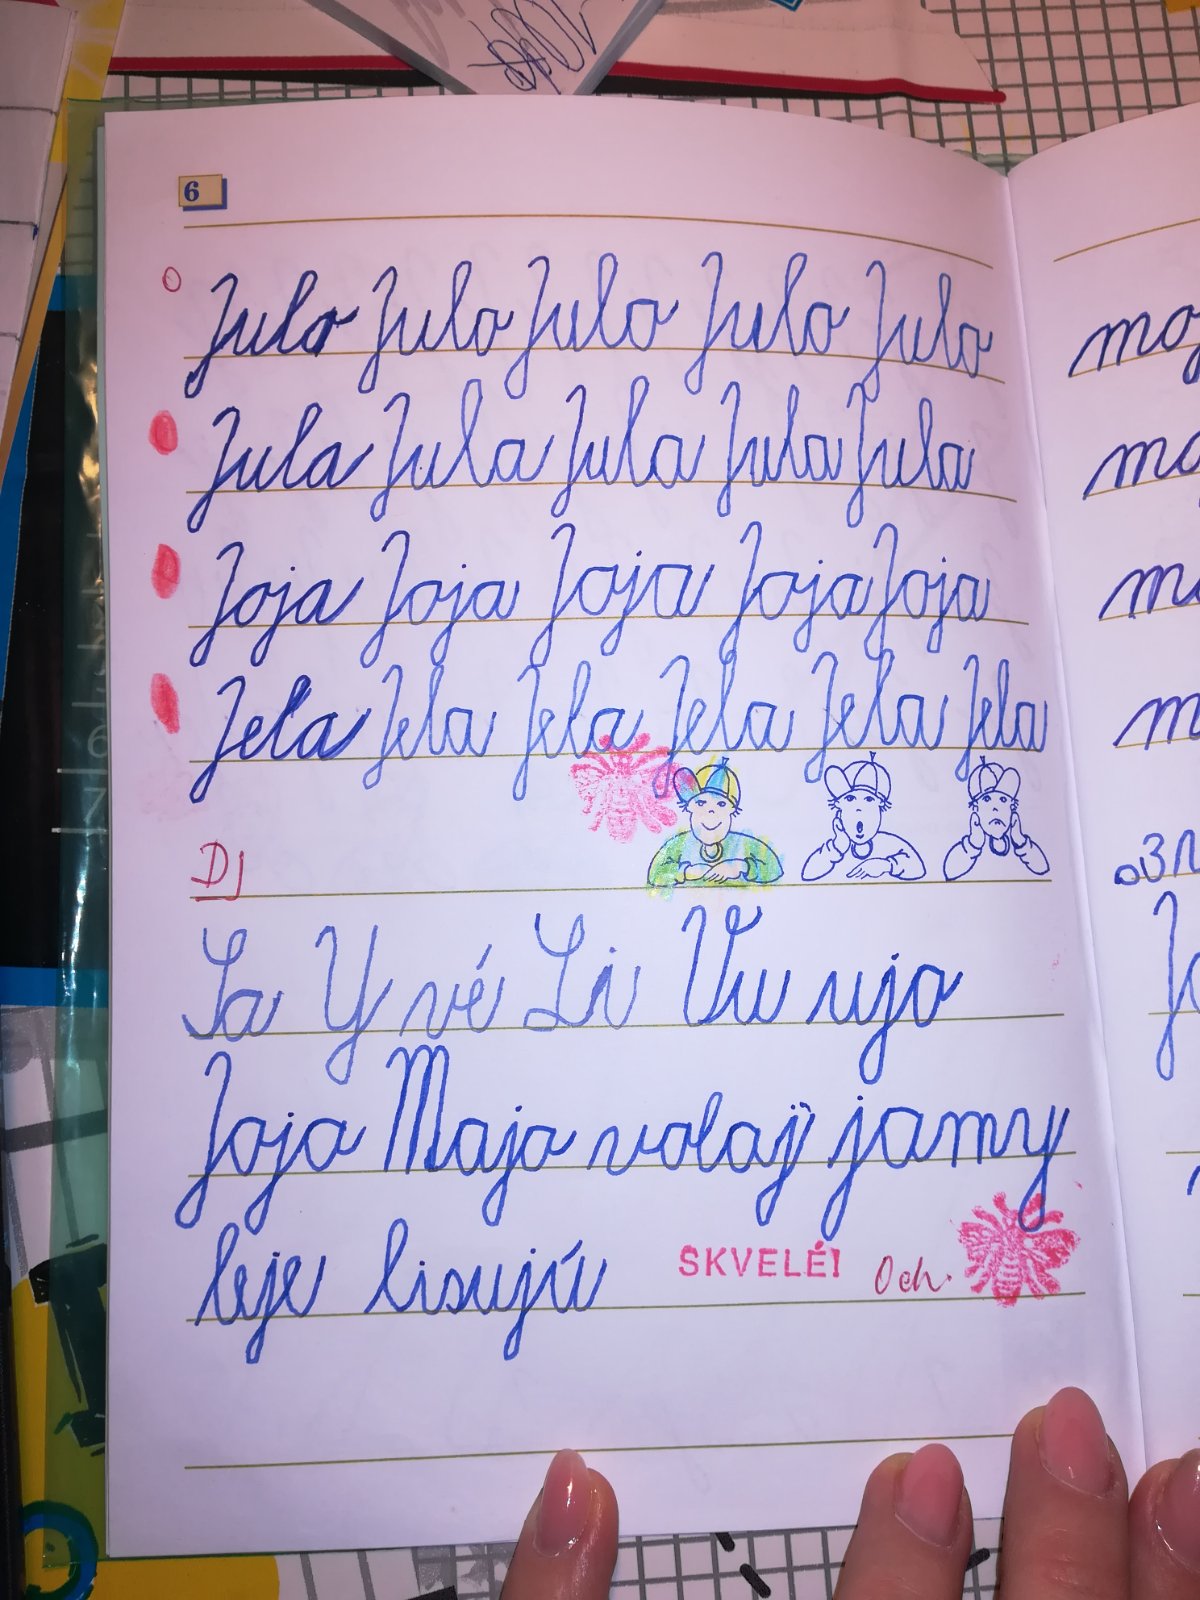 6
Julo Julo Julo Julo Julo
Jula Jula Jula Jula Jula
Joja Joja Joja Joja Joja
Jela Jela Jela Jela Jela Jela
Dj
Sa Y vé Li Vu ujo
Joja Majo volaj jamy
leje lisujú
SKVELÉ! Och.
6
7